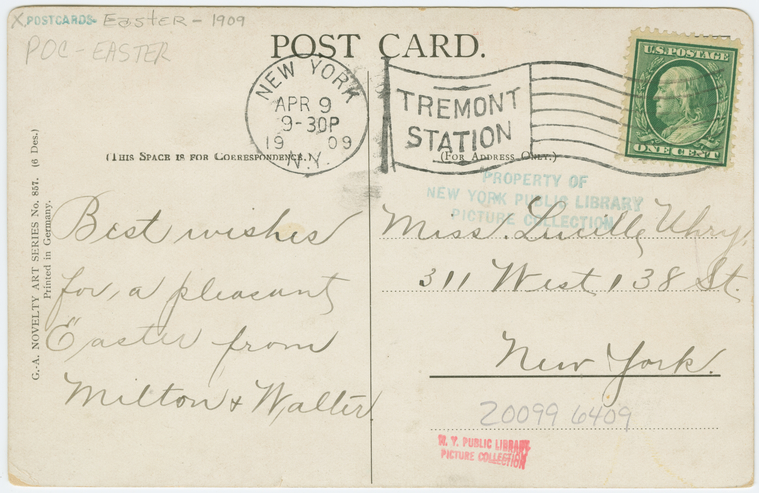 X POSTCARDS- Easter - 1909
POC-EASTER
POST CARD.
U.S. POSTAGE
ONE CENT
NEW YORK
APR 9
9-30P
19 09
N.Y.
TREMONT
STATION
(THIS SPACE IS FOR CORRESPONDENCE.)
(FOR ADDRESS ONLY.)
PROPERTY OF
NEW YORK PUBLIC LIBRARY
PICTURE COLLECTION
G.-A. NOVELTY ART SERIES No. 857. (6 Des.)
Printed in Germany.
Best wishes
for, a pleasant
Easter from
Milton & Walter
Miss. Lucille Uhry,
311 West 138 St.
New York.
20099 6409
N. Y. PUBLIC LIBRARY
PICTURE COLLECTION